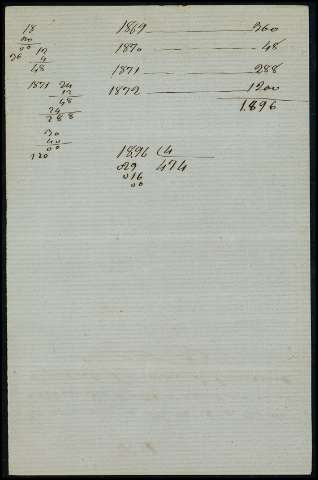 18
20
00
36
12
4
48
1871 24
12
48
24
288
30
40
00
120
1869 360
1870 48
1871 288
1872 1200
1896
1896 (4
029 474
016
00